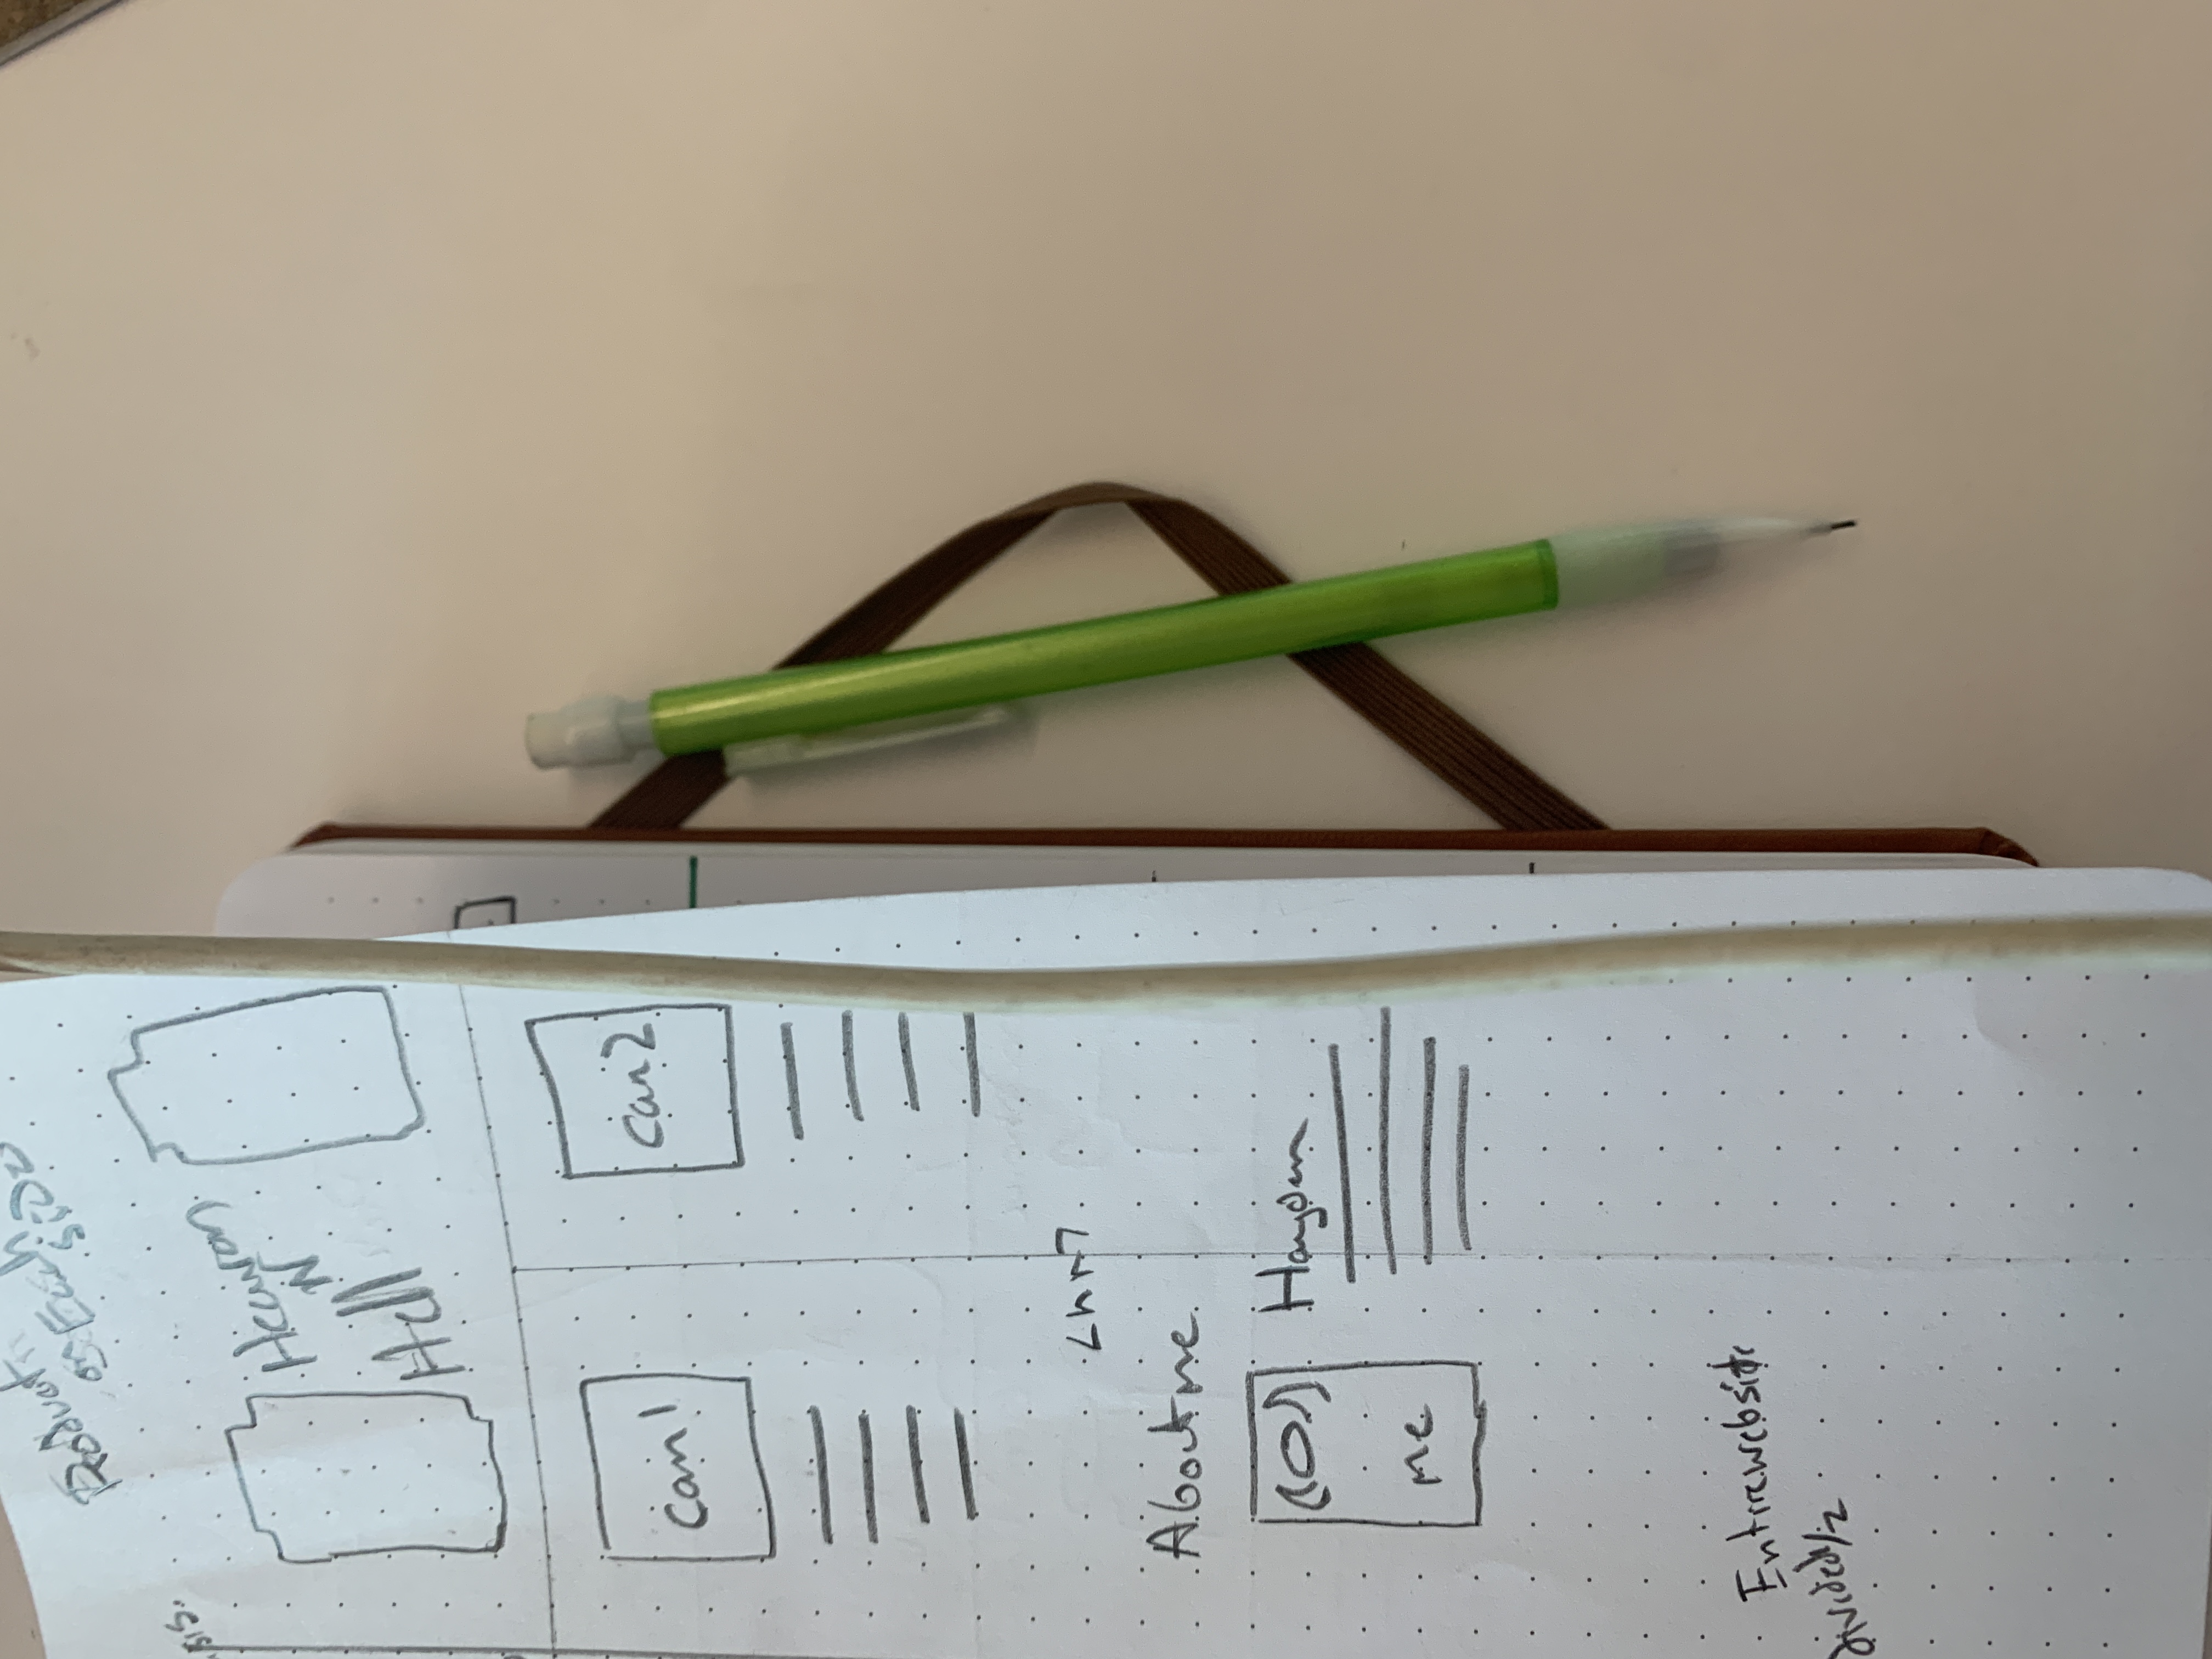 Product
on Each
side
sis.
Heaven
N
Hell
Can 1
Can 2
About me
me
Hayden
Entire web site
divided/2